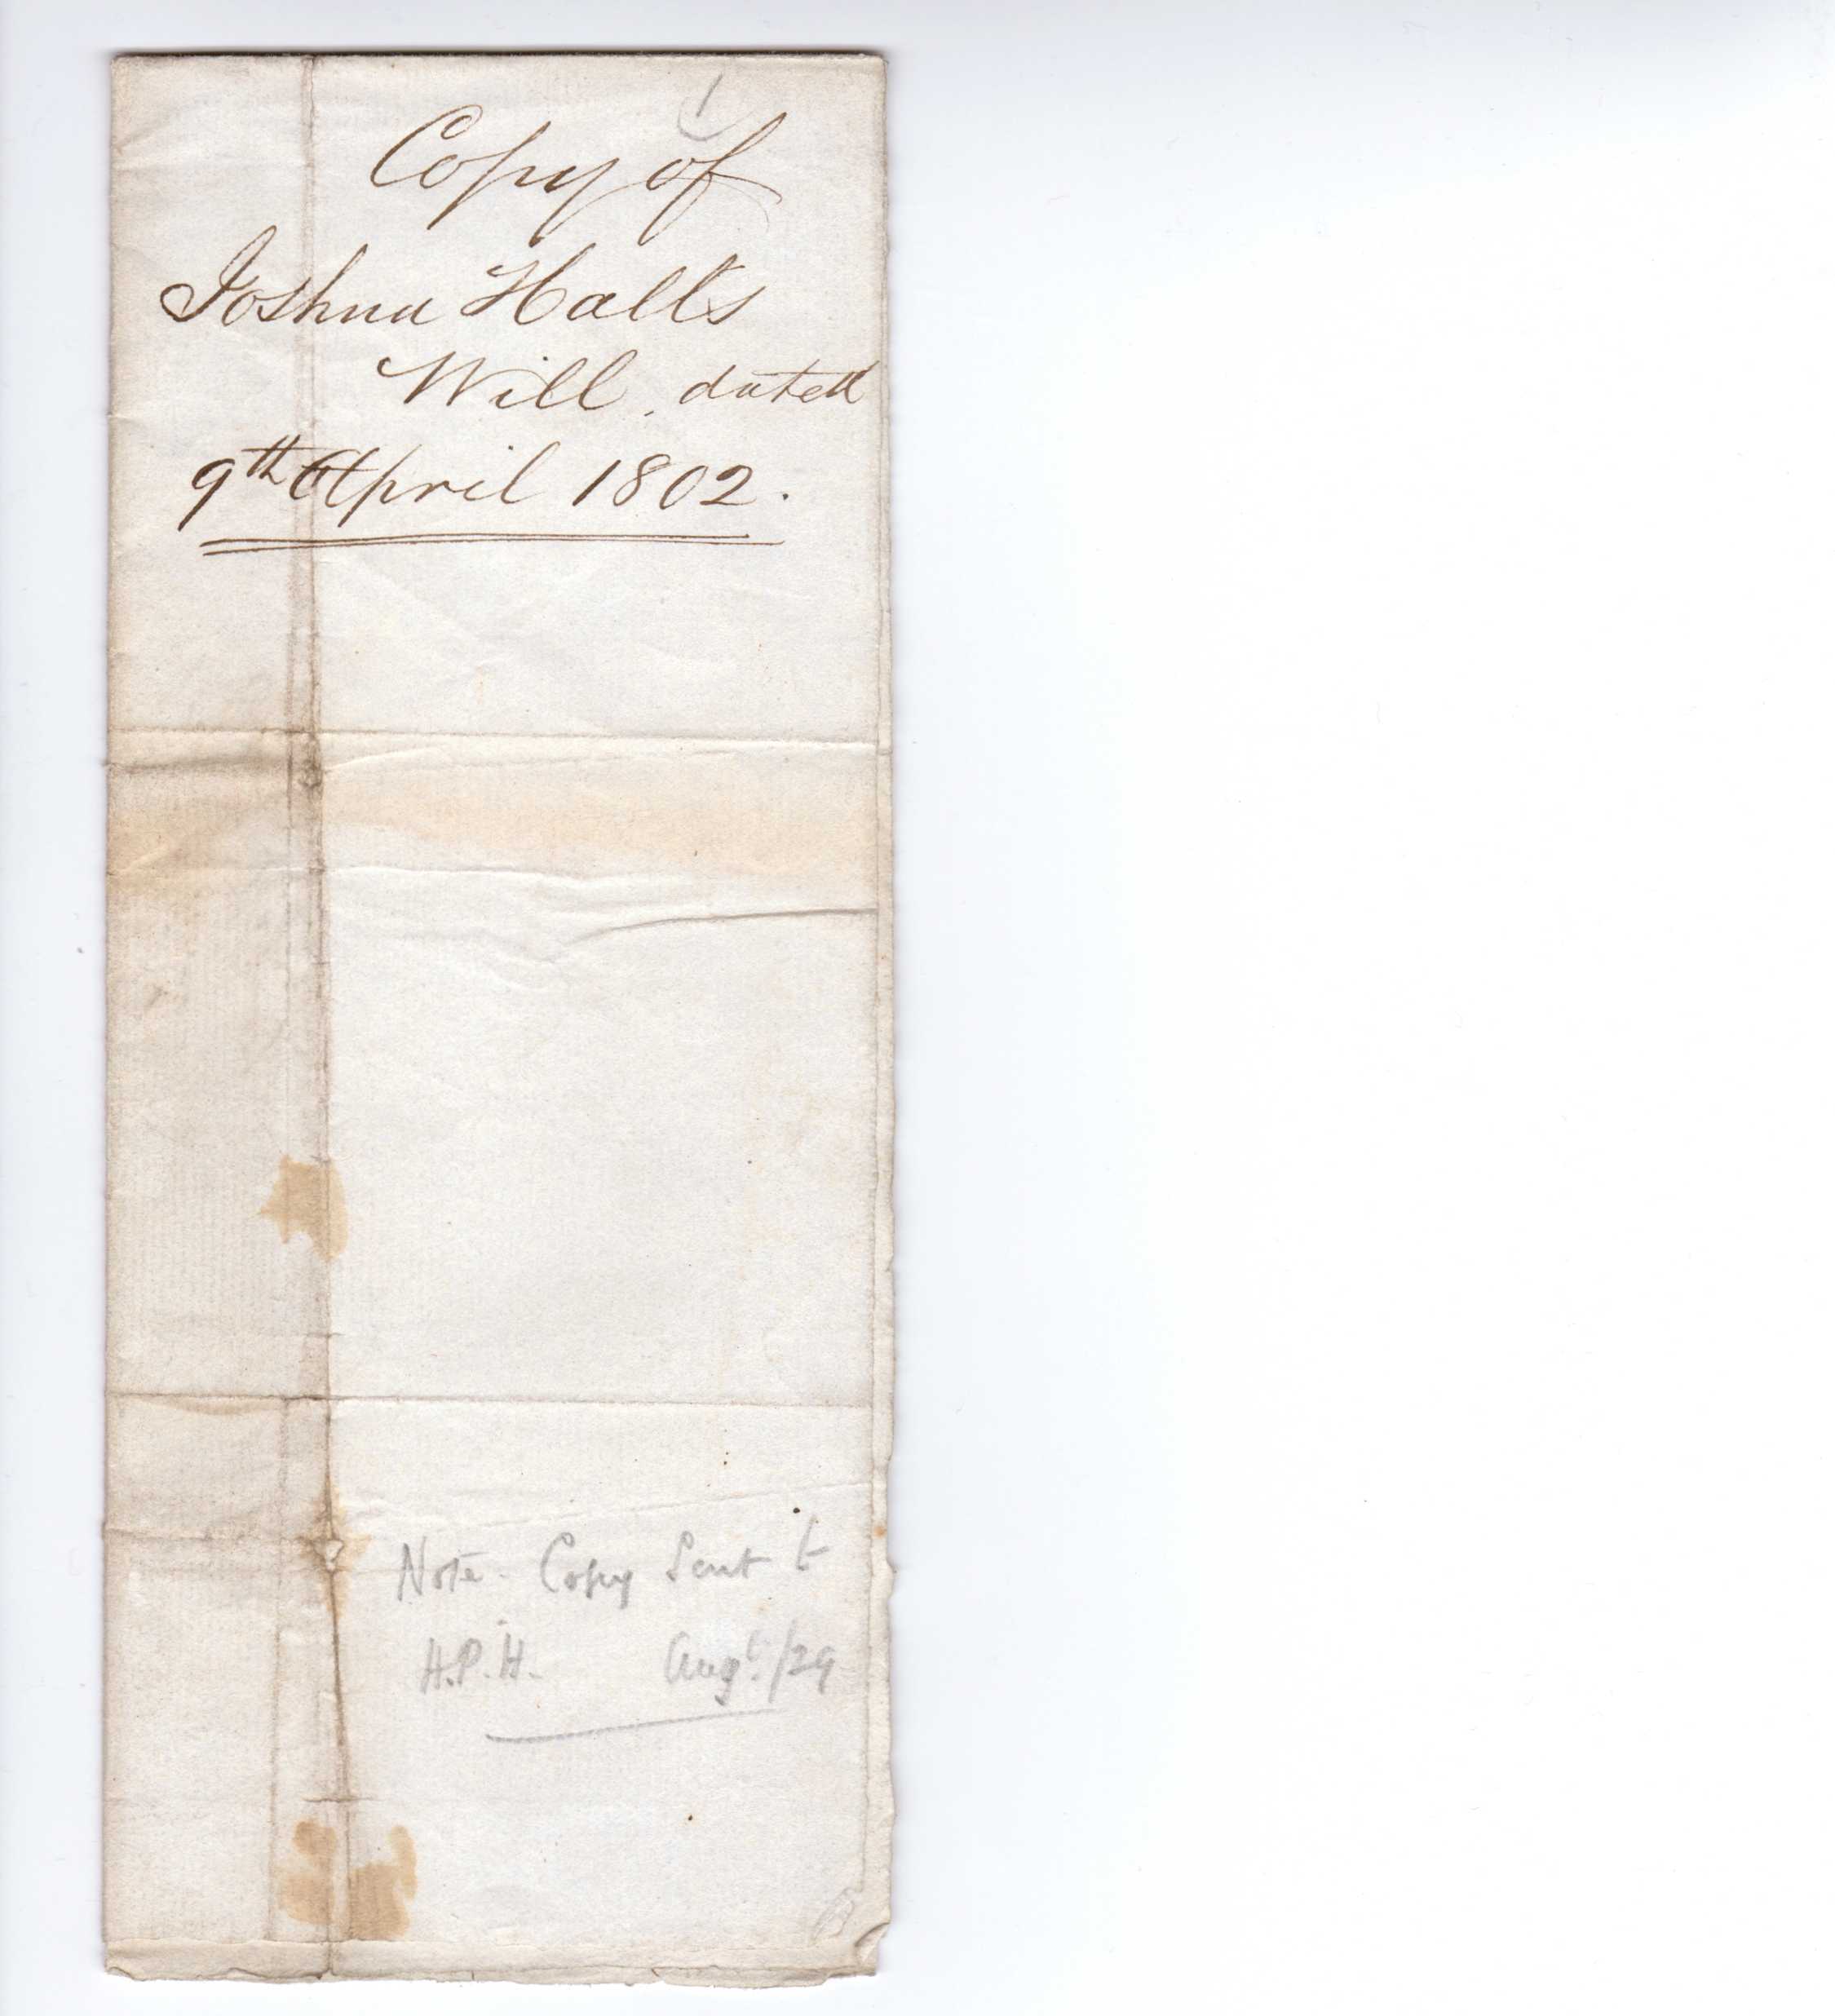 1
Copy of
Joshua Hall's
Will, dated
9th April 1802.
Note - Copy Sent to
H.P.H. Augt./29